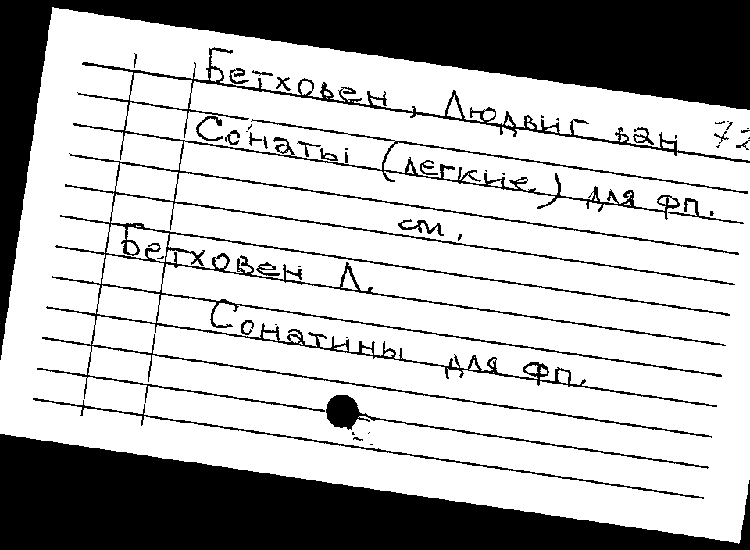 Бетховен, Людвиг ван 72
Сонаты (легкие) для фп.
см.
Бетховен Л.
Сонатины для фп.